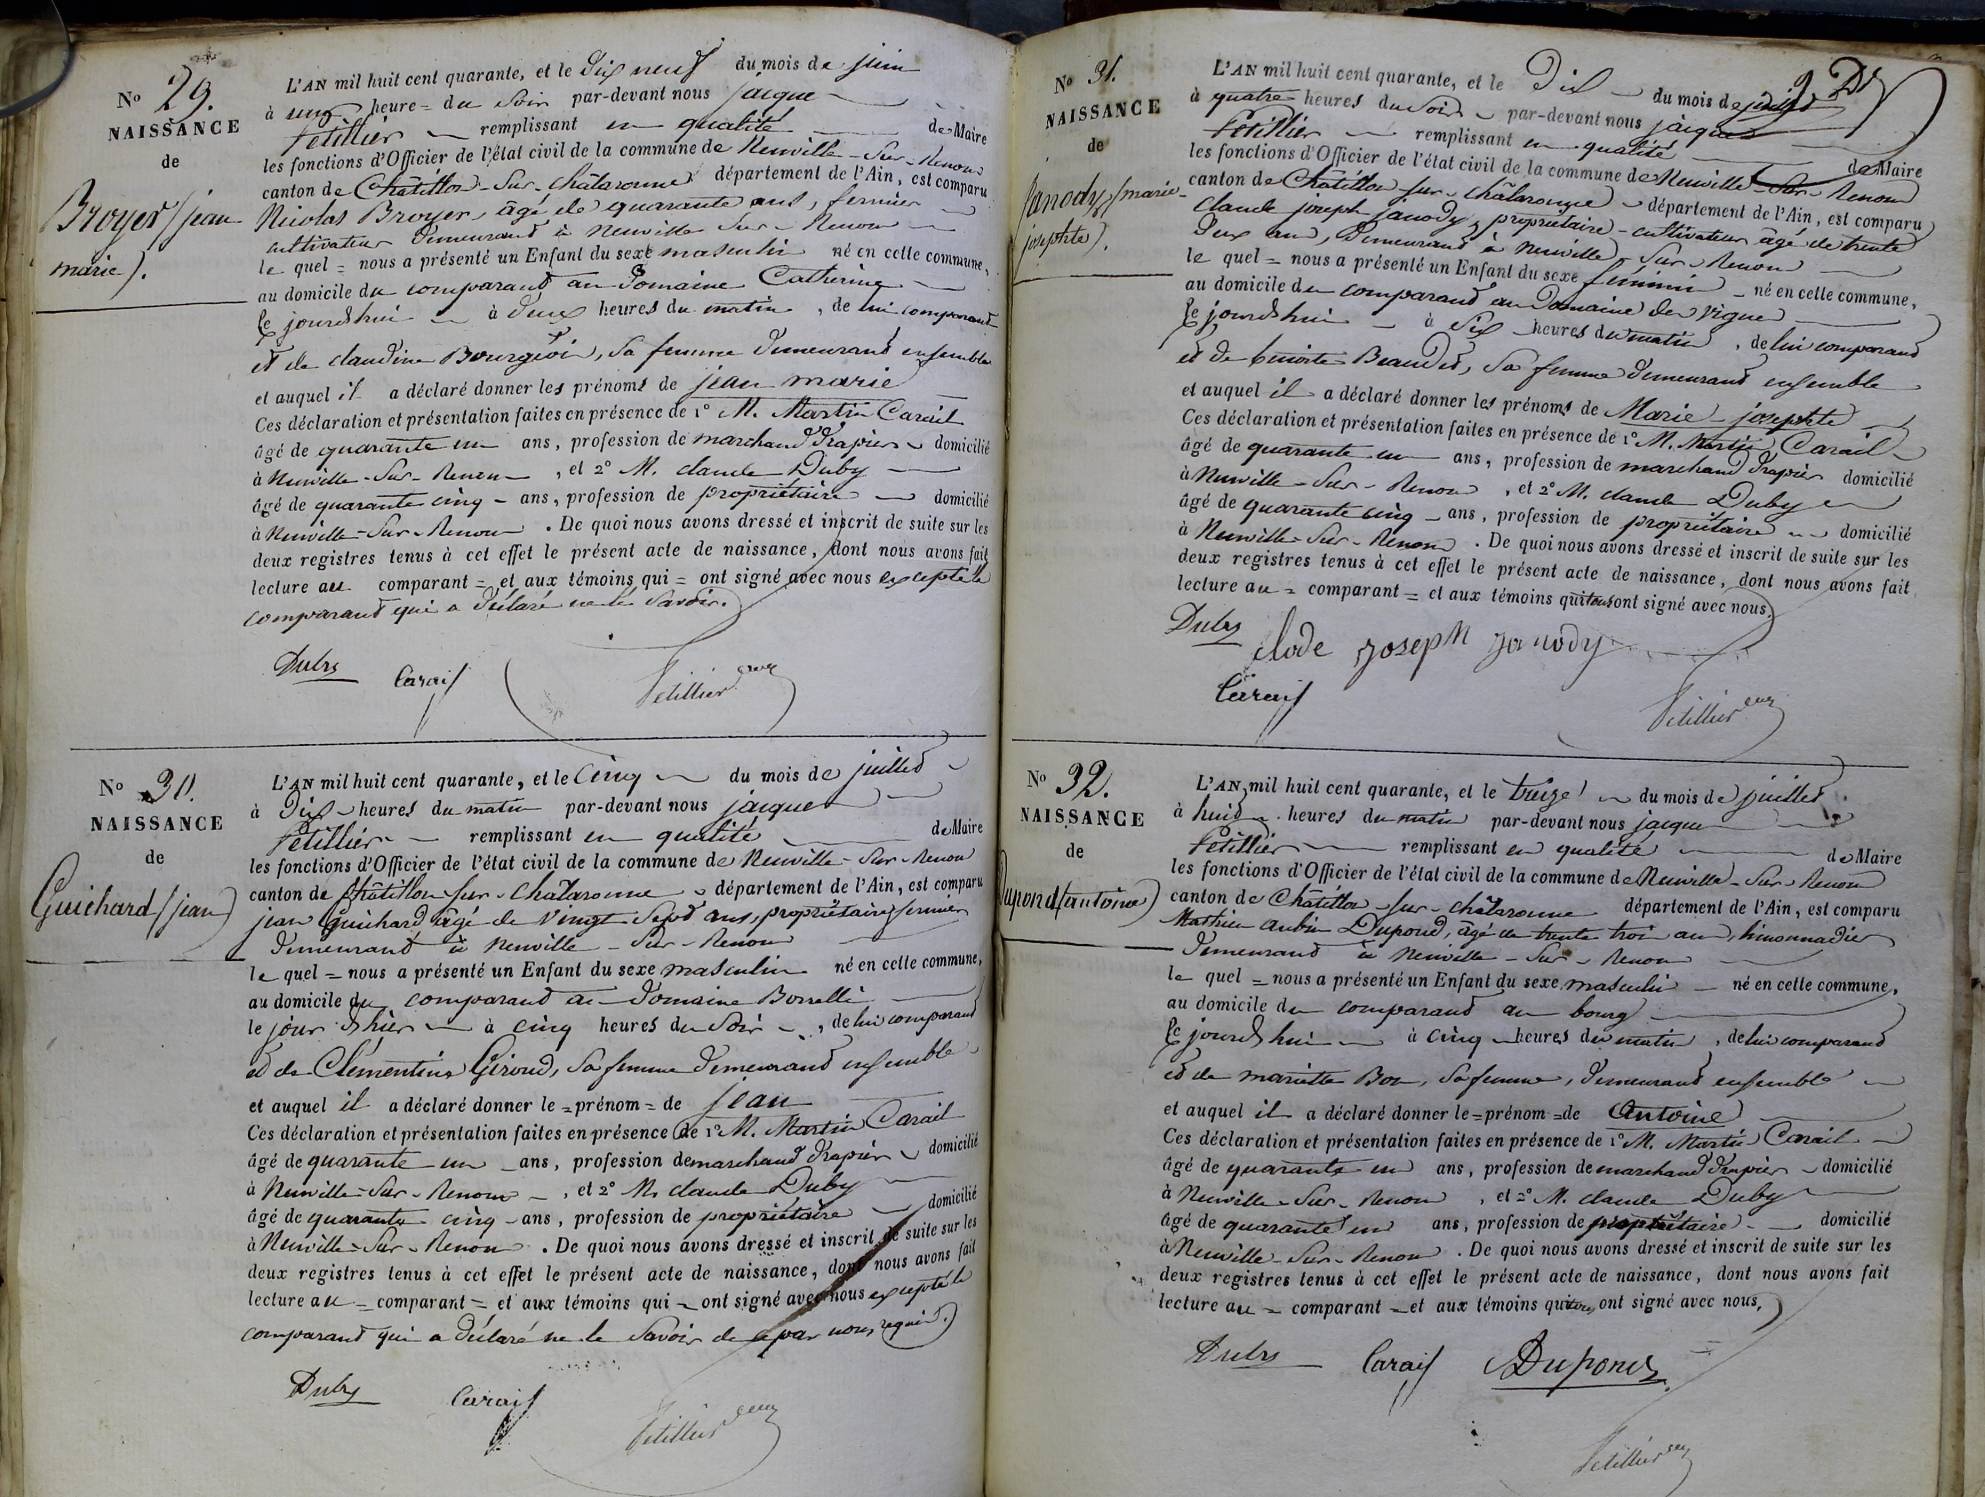 N° 29.
NAISSANCE
de
Broyer (jean
marie).
L'AN mil huit cent quarante, et le dix neuf du mois de juin
à une heure = du soir par-devant nous jacque
Petillier remplissant en qualité de Maire
les fonctions d'Officier de l'état civil de la commune de Neuville-Sur-Renon
canton de Châtillon-Sur-Châlaronne département de l'Ain, est comparu
Nicolas Broyer, âgé de quarante ans, fermier
cultivateur demeurand à Neuville Sur Renon
le quel = nous a présenté un Enfant du sexe masculin né en cette commune,
au domicile du comparand au Domaine Catherine
le jourd'hui à deux heures du matin, de lui comparand
et de claudine Bourgeois, sa femme demeurand ensemble
et auquel il a déclaré donner les prénoms de jean marie
Ces déclaration et présentation faites en présence de 1° M. Martin Carail
âgé de quarante un ans, profession de marchand drapier domicilié
à Neuville-Sur-Renon, et 2° M. claude Duby
âgé de quarante cinq ans, profession de propriétaire domicilié
à Neuville-Sur-Renon. De quoi nous avons dressé et inscrit de suite sur les
deux registres tenus à cet effet le présent acte de naissance, dont nous avons fait
lecture au comparant = et aux témoins qui = ont signé avec nous excepté le
comparand qui a déclaré ne le savoir.
Duby Carail Petillier
N° 30.
NAISSANCE
de
Guichard (jean)
L'AN mil huit cent quarante, et le cinq du mois de juillet
à dix heures du matin par-devant nous jacque
Petillier remplissant en qualité de Maire
les fonctions d'Officier de l'état civil de la commune de Neuville-Sur-Renon
canton de Châtillon-sur-Châlaronne département de l'Ain, est comparu
jean Guichard âgé de vingt sept ans, propriétaire fermier
demeurand à Neuville-Sur-Renon
le quel = nous a présenté un Enfant du sexe masculin né en cette commune,
au domicile du comparand au Domaine Borrelli
le jour d'hier à cinq heures du soir, de lui comparand
et de Clémentine Giroud, sa femme demeurand ensemble
et auquel il a déclaré donner le = prénom = de jean
Ces déclaration et présentation faites en présence de 1° M. Martin Carail
âgé de quarante un ans, profession de marchand drapier domicilié
à Neuville-Sur-Renon, et 2° M. claude Duby
âgé de quarante cinq ans, profession de propriétaire domicilié
à Neuville-Sur-Renon. De quoi nous avons dressé et inscrit de suite sur les
deux registres tenus à cet effet le présent acte de naissance, dont nous avons fait
lecture au = comparant = et aux témoins qui ont signé avec nous excepté le
comparand qui a déclaré ne le savoir de par nous requis.
Duby Carail Petillier
N° 31.
NAISSANCE
de
Janody (marie
josephte).
L'AN mil huit cent quarante, et le dix du mois de juillet
à quatre heures du soir par-devant nous jacque
Petillier remplissant en qualité de Maire
les fonctions d'Officier de l'état civil de la commune de Neuville-Sur-Renon
canton de Châtillon-sur-Châlaronne département de l'Ain, est comparu
claude joseph janody, propriétaire-cultivateur âgé de trente
deux ans, demeurand à Neuville-Sur-Renon
le quel = nous a présenté un Enfant du sexe féminin né en cette commune,
au domicile du comparand au Domaine des vignes
le jourd'hui à six heures du matin, de lui comparand
et de benoite Beaudet, sa femme demeurand ensemble
et auquel il a déclaré donner les prénoms de Marie josephte
Ces déclaration et présentation faites en présence de 1° M. Martin Carail
âgé de quarante un ans, profession de marchand drapier domicilié
à Neuville-Sur-Renon, et 2° M. claude Duby
âgé de quarante cinq ans, profession de propriétaire domicilié
à Neuville-Sur-Renon. De quoi nous avons dressé et inscrit de suite sur les
deux registres tenus à cet effet le présent acte de naissance, dont nous avons fait
lecture au = comparant = et aux témoins qui tous ont signé avec nous.
Duby clode joseph janody
Carail Petillier
N° 32.
NAISSANCE
de
Dupond (antoine)
L'AN mil huit cent quarante, et le treize du mois de juillet
à huit heures du matin par-devant nous jacque
Petillier remplissant en qualité de Maire
les fonctions d'Officier de l'état civil de la commune de Neuville-Sur-Renon
canton de Châtillon-sur-Châlaronne département de l'Ain, est comparu
Mathieu aubin Dupond, âgé de trente trois ans, limonnadier
demeurand à Neuville-Sur-Renon
le quel = nous a présenté un Enfant du sexe masculin né en cette commune,
au domicile du comparand au bourg
le jourd'hui à cinq heures du matin, de lui comparand
et de mariette Bon, sa femme, demeurand ensemble
et auquel il a déclaré donner le = prénom = de antoine
Ces déclaration et présentation faites en présence de 1° M. Martin Carail
âgé de quarante un ans, profession de marchand drapier domicilié
à Neuville-Sur-Renon, et 2° M. claude Duby
âgé de quarante un ans, profession de propriétaire domicilié
à Neuville-Sur-Renon. De quoi nous avons dressé et inscrit de suite sur les
deux registres tenus à cet effet le présent acte de naissance, dont nous avons fait
lecture au = comparant = et aux témoins qui tous ont signé avec nous,
Duby Carail Dupond
Petillier